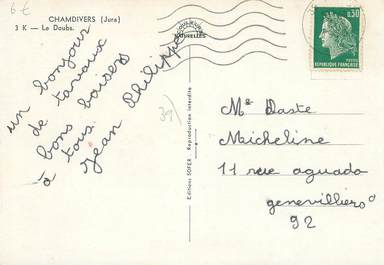 6€
CHAMDIVERS (Jura)
3 K — Le Doubs.
un bonjour
de tavaux
bons baisers
à tous.
Jean Philippe
39
NATURELLES
0,30
POSTES
RÉPUBLIQUE FRANÇAISE
Editions SOFER - Reproduction interdite
Me Daste
Micheline
11 rue aguado
genevilliers
92